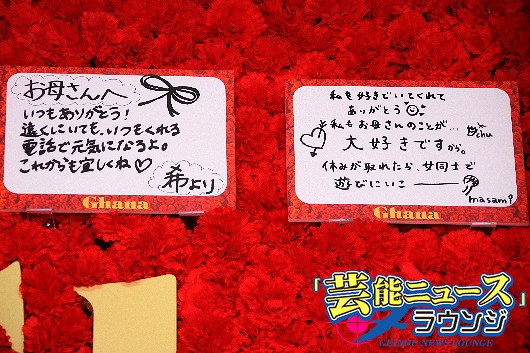 お母さんへ
いつもありがとう!
遠くにいても、いつもくれる
電話で元気になるよ。
これからも宜しくね♡
希より
Ghana
私を好きでいてくれて
ありがとう
私もお母さんのことが…
chu
大好きですから。
休みが取れたら、女同士で
遊びにいこーーー
masami
Ghana
11
「芸能ニュース」
ラウンジ
GEINOU NEWS LOUNGE